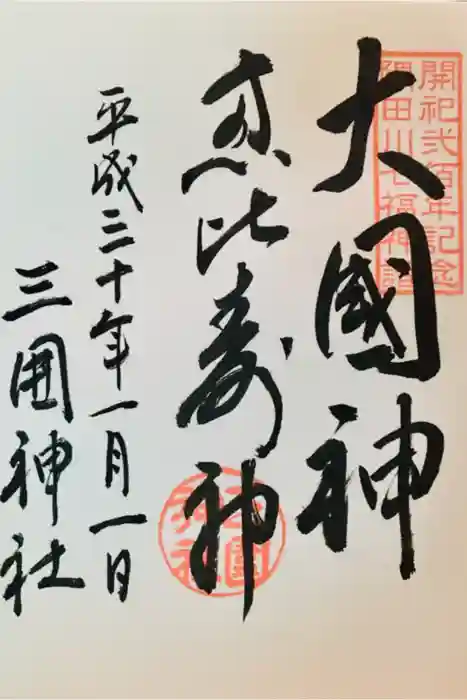 開祀弐佰年記念
隅田川七福神詣
大國神
恵比寿神
平成三十年一月一日
三囲神社